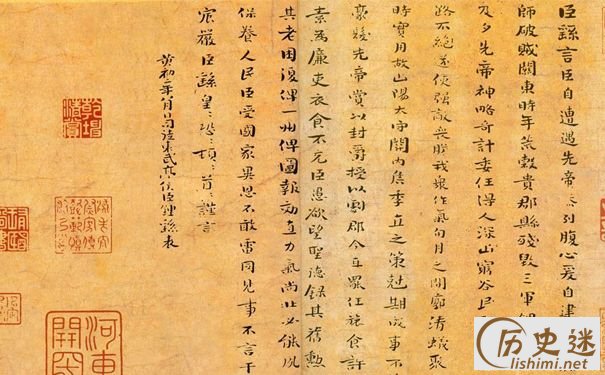 臣繇言臣自遭遇先帝忝列腹心爰自建
師破賊關東時年荒穀貴郡縣殘毀三軍
及夕先帝神略奇計委任得人深山窮谷民
路不絕遂使強敵喪膽我眾作氣旬月之間廓清蟻聚
時實用故山陽太守關內侯季直之策剋期成事不
豪髮先帝賞以封爵授以劇郡今直罷任旅食許
素為廉吏衣食不充臣愚欲望聖德錄其舊勳
其老困復俾一州俾圖報效直力氣尚壯必能夙
保養人民臣受國家異恩不敢雷同見事不言干
宸嚴臣繇皇:恐:頓:首:謹言
黃初二年八月日司徒東武亭侯臣鍾繇表
乾隆
鑑賞
河東
历史迷
lishimi.net